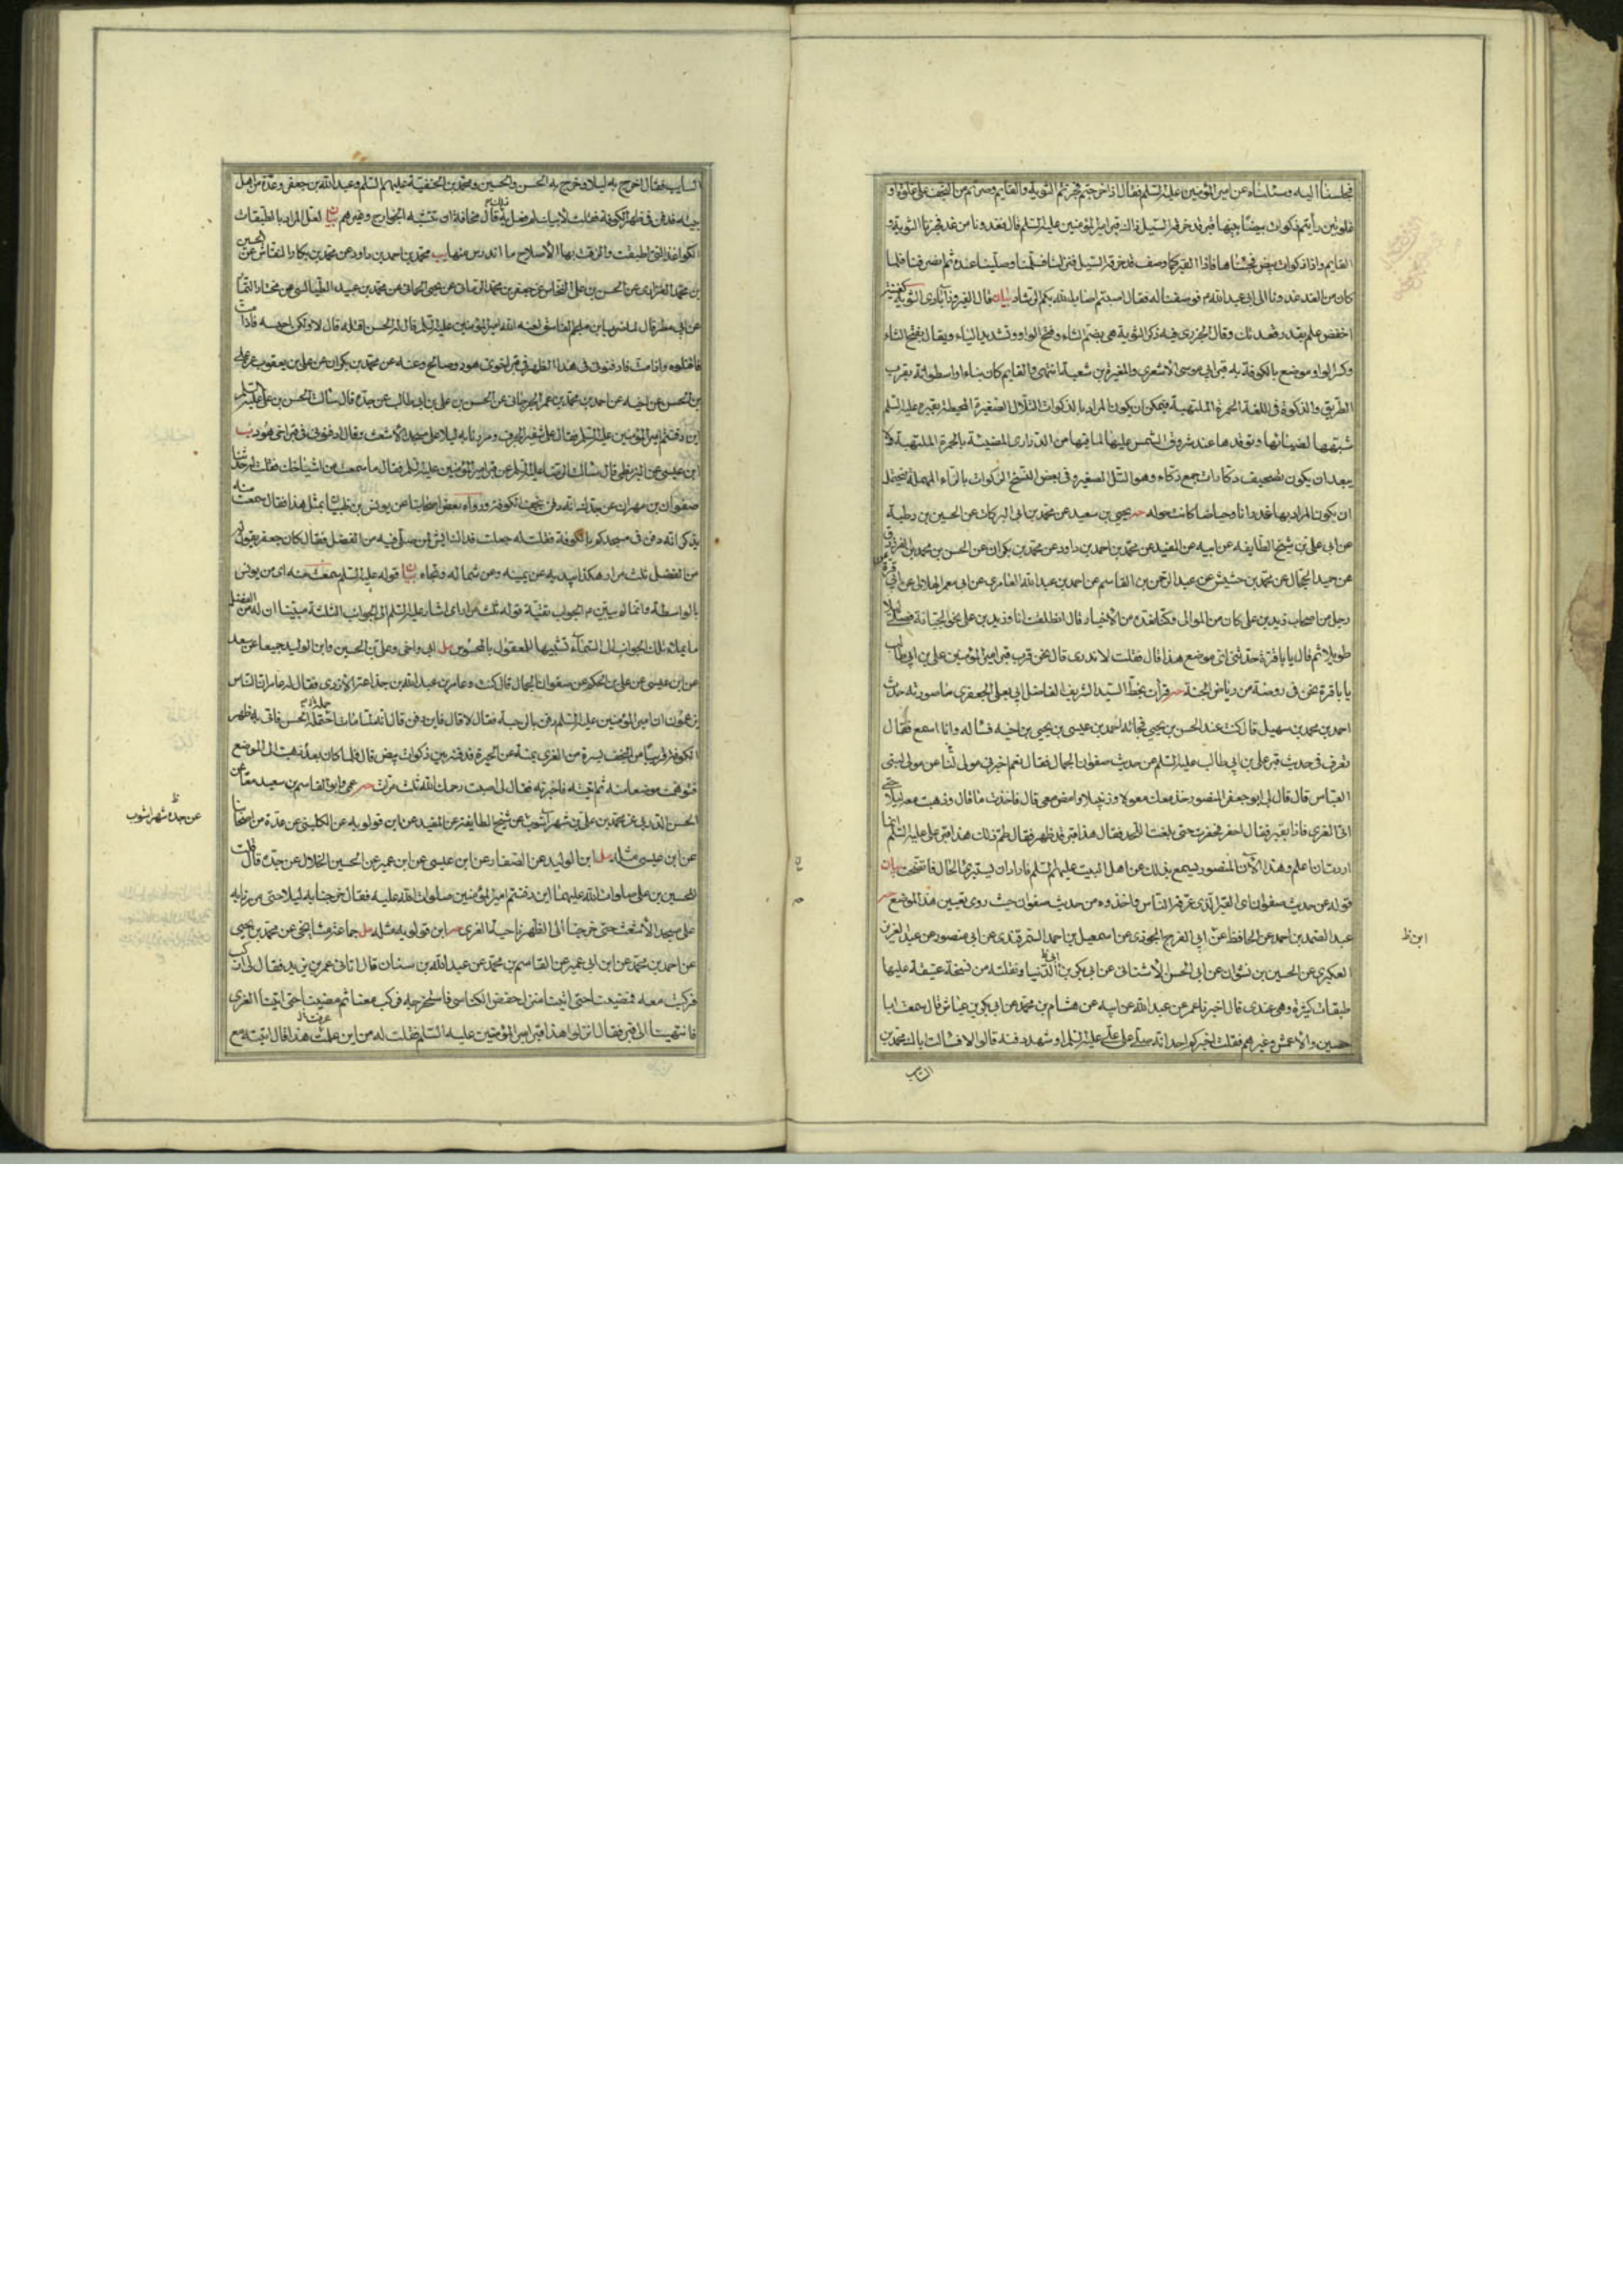 فجلسنا اليه وسئلناه عن امير المؤمنين عليه السلم فقال اذا خرجتم فجزتم الثوية والقايم وصرتم من النجف على غلوة او
غلوتين رأيتم ذكوات بيضا بينها قبر قد خرقه السيل ذاك قبر امير المؤمنين عليه السلم قال فغدونا من غد فجزنا الثوية و
القايم واذا ذكوات بيض فجئناها فاذا القبر كما وصف قد خرقه السيل فنزلنا فسلمنا وصلينا عنده ثم انصرفنا فلما
كان من الغد غدونا الى ابي عبد الله م فوصفنا له فقال اصبتم اصاب الله بكم الرشاد بيان قال الفيروزآبادي الثوية كغنية
اخفض علم بقدر قعدتك وقال الجزري فيه ذكر الثوية هي بضم الثاء وفتح الواو وتشديد الياء ويقال بفتح الثاء
وكسر الواو موضع بالكوفة به قبر ابي موسى الاشعري والمغيرة بن شعبة انتهى والقايم كان بناء او اسطوانة بقرب
الطريق والذكوة في اللغة الجمرة الملتهبة فيمكن ان يكون المراد بالذكوات التلال الصغيرة المحيطة بقبره عليه السلم
شبهها لضيائها وتوقدها عند شروق الشمس عليها لما فيها من الدراري المضيئة بالجمرة الملتهبة ولا
يبعد ان يكون تصحيف دكاوات جمع دكاء وهو التل الصغير وفي بعض النسخ الركوات بالراء المهملة فيحتمل
ان يكون المراد بها غدرانا وحياضا كانت حوله حر يحيى بن سعيد عن محمد بن ابي البركات عن الحسين بن رطبة
عن ابي علي بن شيخ الطايفه عن ابيه عن المفيد عن محمد بن احمد بن داود عن محمد بن بكران عن الحسن بن محمد بن الفرزدق
عن حميد الجمال عن محمد بن حشيش عن عبد الرحمن بن القاسم عن احمد بن عبد الله العامري عن ابي معمر الهلالي عن ابي قرة
رجل من اصحاب زيد بن علي كان من الموالي وكنا نعده من الاخيار قال انطلقت انا وزيد بن علي نحو الجبانة فصلى ليلا
طويلا ثم قال يا باقرة حدثني اي موضع هذا قال فقلت لا ندري قال نحن قرب قبر امير المؤمنين علي بن ابي طالب
يا باقرة نحن في روضة من رياض الجنة حر قرأت بخط السيد الشريف الفاضل ابي يعلى الجعفري ما صورته حدث
احمد بن محمد بن سهيل قال كنت عند الحسن بن يحيى فجائه احمد بن عيسى بن يحيى بن اخيه فسأله وانا اسمع فقال
تعرف في حديث قبر علي بن ابي طالب عليه السلم عن حديث صفوان الجمال فقال نعم اخبرني مولى لنا عن مولى لبني
العباس قال قال لي ابو جعفر المنصور خذ معك معولا وزنبيلا وامض معي قال فاخذت ما قال وذهبت معه ليلا حتى
اتى الغري فاذا بقبر فقال احفر فحفرت حتى بلغت اللحد فقال هذا قبر قد ظهر فقال طم ذلك هذا قبر علي عليه السلم انما
اردت ان اعلم وهذا لان المنصور سمع بذلك عن اهل البيت عليهم السلم فاراد ان يستبرئ الحال فاتضحت بيان
قوله عن حديث صفوان اي القبر الذي عرفه الناس واخذوه من حديث صفوان حيث روى تعيين هذا الموضع حر
عبد الصمد بن احمد عن الحافظ عن ابي الفرج الجوزي عن اسمعيل بن احمد السمرقندي عن ابي منصور عن عبد العزيز
ابن ظ
العكبري عن الحسين بن بشران عن ابي الحسن الاشناني عن ابي بكر بن ابي الدنيا ونقلته من نسخة عتيقة عليها
طبقات كثيرة وهي عندي قال اخبرنا عمر عن عبد الله عن ابيه عن هشام بن محمد عن ابي بكر بن عياش قال سمعت ابا
حصين والاعمش وغيرهم فقلت اخبركم احد انه صلى على علي عليه السلم او شهد دفنه قالوا لا فسألت اباك محمد بن
السايب
السايب فقال اخرج به ليلا وخرج به الحسن والحسين ومحمد بن الحنفية عليهم السلم وعبد الله بن جعفر وعدة من اهل
بيته فدفن في ظهر الكوفة فقلت لابيك لم فعل به ذلك قال مخافة ان تنبشه الخوارج وغيرهم بيان لعل المراد بالطبقات
الكواغذ التي اطبقت والزقت بها لاصلاح ما اندرس منها يب محمد بن احمد بن داود عن محمد بن بكار النقاش عن الحسين
بن محمد الفزاري عن الحسن بن علي النخاس عن جعفر بن محمد الرماني عن يحيى الحماني عن محمد بن عبيد الطيالسي عن مختار التمار
عن ابي مطر قال لما ضرب ابن ملجم الفاسق لعنه الله امير المؤمنين عليه السلم قال له الحسن اقتله قال لا ولكن احبسه فاذا مت
فاقتلوه واذا مت فادفنوني في هذا الظهر في قبر اخوي هود وصالح وعنه عن محمد بن بكران عن علي بن يعقوب عن علي
بن الحسن عن اخيه عن احمد بن محمد بن عمر الجرجاني عن الحسن بن علي بن ابي طالب عن جده قال سألت الحسن بن علي عليه السلم
اين دفنتم امير المؤمنين عليه السلم فقال على شفير الجرف ومررنا به ليلا على مسجد الاشعث وقال ادفنوني في قبر اخي هود يب
ابن عيسى عن البزنطي قال سألت الرضا عليه السلم عن قبر امير المؤمنين عليه السلم فقال ما سمعت من اشياخك فقلت له حدثنا
صفوان بن مهران عن جدك انه دفن بنجف الكوفة ورواه بعض اصحابنا عن يونس بن ظبيان بمثل هذا فقال سمعت منه
يذكر انه دفن في مسجدكم بالكوفة فقلت له جعلت فداك ايش لمن صلى فيه من الفضل فقال كان جعفر يقول له
من الفضل ثلث مرار هكذا بيديه عن يمينه وعن شماله وتجاه بيان قوله عليه السلم سمعت منه اي من يونس
بالواسطة وانما لم يبين م الجواب تقية قوله ثلث مرار اي اشار عليه السلم الى الجوانب الثلثة مبينا ان له من الفضل
ما يملاء تلك الجوانب الى السماء تشبيها للمعقول بالمحسوس مل ابي واخي وعلي بن الحسين وابن الوليد جميعا عن سعد
عن ابن عيسى عن علي بن الحكم عن صفوان الجمال قال كنت وعامر بن عبد الله بن جذاعة الازدي فقال له عامر ان الناس
يزعمون ان امير المؤمنين عليه السلم دفن بالرحبة فقال لا قال فاين دفن قال انه لما مات احتمله الحسن فاتى به ظهر
الكوفة قريبا من النجف يسرة من الغري يمنة عن الحيرة فدفنه بين ذكوات بيض قال فلما كان بعد ذهبت الى الموضع
فتوهمت موضعا منه ثم اتيته فاخبرته فقال لي اصبت رحمك الله ثلث مرات حر عمي وابو القاسم بن سعيد معا عن
الحسن الدربي عن محمد بن علي بن شهر آشوب عن شيخ الطايفة عن المفيد عن ابن قولويه عن الكليني عن عدة من اصحابنا
عن جده شهر اشوب ظ
عن ابن عيسى مثله مل ابن الوليد عن الصفار عن ابن عيسى عن ابن عمير عن الحسين الخلال عن جده قال قلت
للحسين بن علي صلوات الله عليهما اين دفنتم امير المؤمنين صلوات الله عليه فقال خرجنا به ليلا حتى مررنا به
على مسجد الاشعث حتى خرجنا الى الظهر ناحية الغري حر ابن قولويه مثله مل جماعة مشايخي عن محمد بن يحيى
عن احمد بن محمد عن ابن ابي عمير عن القاسم بن محمد عن عبد الله بن سنان قال اتاني عمر بن يزيد فقال لي اركب
فركبت معه فمضينا حتى اتينا منزل حفص الكناسي فاستخرجه فركب معنا ثم مضينا حتى اتينا الغري
فانتهينا الى قبر فقال انزلوا هذا قبر امير المؤمنين عليه السلم فقلت له من اين علمت هذا قال اتيته مع